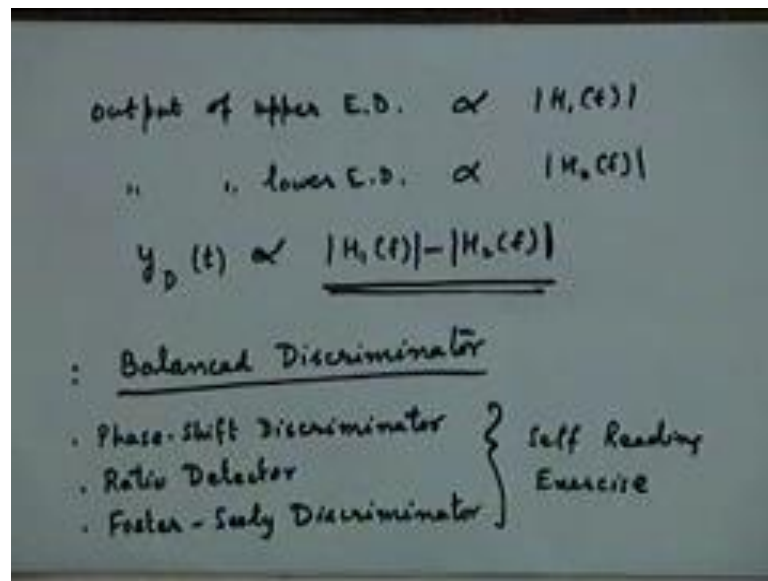 output of upper E.D. ∝ |H₁(f)|
" " lower E.D. ∝ |H₂(f)|
y_D (t) ∝ |H₁(f)|-|H₂(f)|
: Balanced Discriminator
. Phase-Shift Discriminator
. Ratio Detector
. Foster-Seely Discriminator
} Self Reading
Exercise